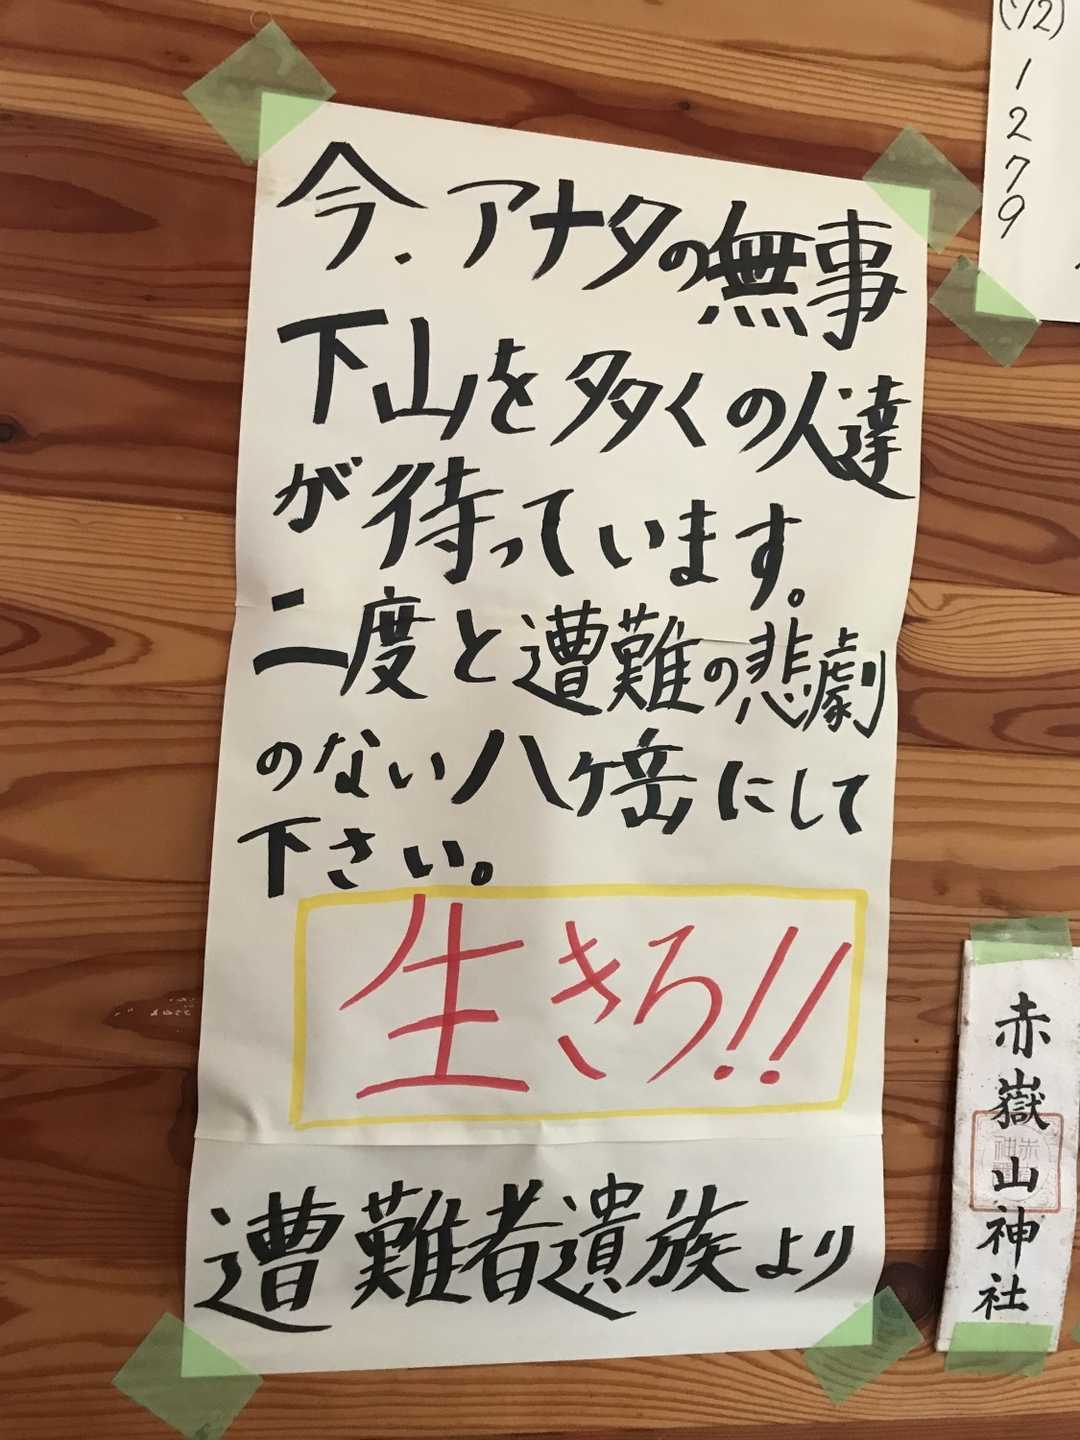 今、アナタの無事
下山を多くの人達
が待っています。
二度と遭難の悲劇
のない八ヶ岳にして
下さい。
生きろ!!
遭難者遺族より
(1/2)
1279
赤嶽山神社